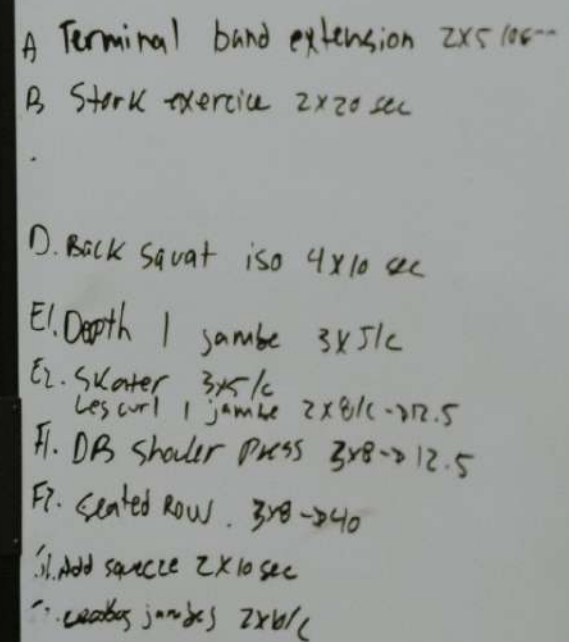 A Terminal band extension 2x5 10s--
B Stork exercice 2x20 sec
D. Back squat iso 4x10 sec
E1. Depth 1 jambe 3x5/c
E2. Skater 3x5/c
Leg curl 1 jambe 2x8/c->12.5
F1. DB Shouler Press 3x8->12.5
F2. Seated Row. 3x8->40
1. Add squeeze 2x10sec
jambes 2x6/c